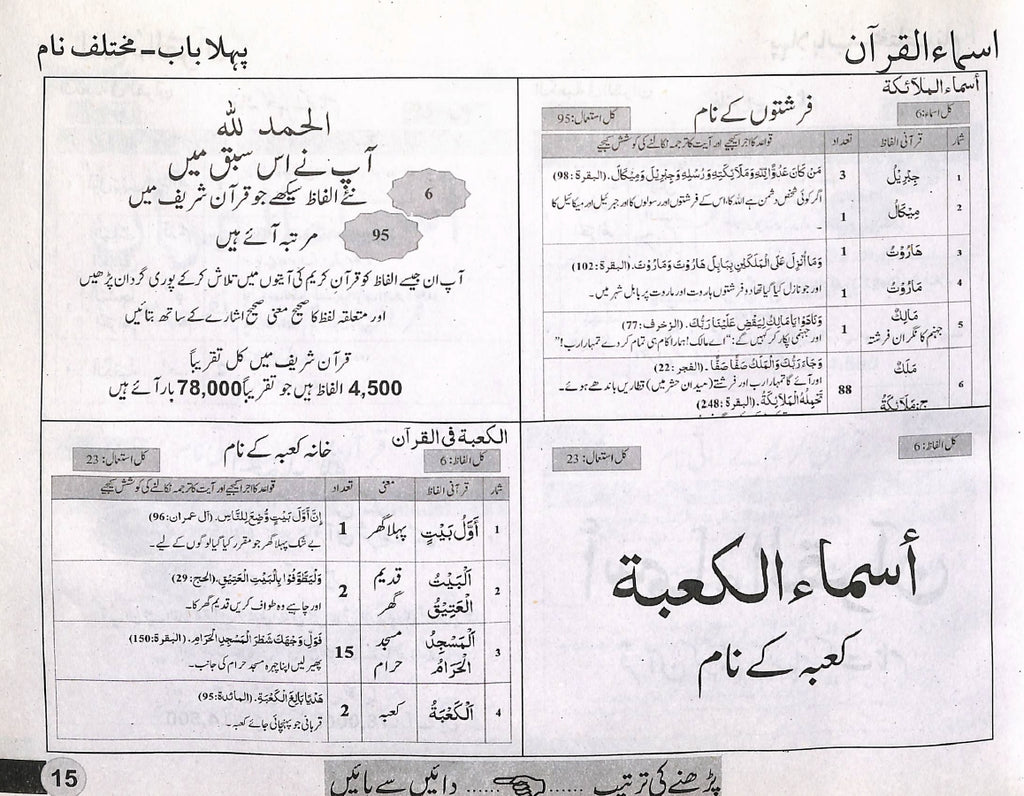 اسماء القرآن
پہلا باب۔ مختلف نام
أسماء الملائكة
کل اسماء:6
فرشتوں کے نام
کل استعمال:95
شمار قرآنی الفاظ تعداد قواعد کا اجرا کیجیے اور آیت کا ترجمہ نکالنے کی کوشش کیجیے
1 جِبْرِيْلُ 3 مَنْ كَانَ عَدُوًّا لِلّٰهِ وَمَلَائِكَتِهٖ وَرُسُلِهٖ وَجِبْرِيْلَ وَمِيْكَالَ. (البقرة:98)
2 مِيْكَالُ 1 اگر کوئی شخص دشمن ہے اللہ کا، اس کے فرشتوں اور رسولوں کا اور جبرئیل اور میکائیل کا۔
3 هَارُوْتُ 1 وَمَا اُنْزِلَ عَلَى الْمَلَكَيْنِ بِبَابِلَ هَارُوْتَ وَمَارُوْتَ. (البقرة:102)
4 مَارُوْتُ 1 اور جو نازل کیا گیا تھا دو فرشتوں ہاروت اور ماروت پر بابل شہر میں۔
5 مَالِكٌ 1 وَنَادَوْا يَا مَالِكُ لِيَقْضِ عَلَيْنَا رَبُّكَ. (الزخرف:77)
جہنم کا نگران فرشتہ اور جہنمی پکار کر کہیں گے: "اے مالک! ہمارا کام ہی تمام کر دے تمہارا رب!"
6 مَلَكٌ 88 وَجَاءَ رَبُّكَ وَالْمَلَكُ صَفًّا صَفًّا. (الفجر:22)
اور آئے گا تمہارا رب اور فرشتے (میدان حشر میں) قطاریں باندھے ہوئے۔
ج: مَلَائِكَةٌ تَحْمِلُهُ الْمَلَائِكَةُ. (البقرة:248)
الحمد للہ
آپ نے اس سبق میں
6 نئے الفاظ سیکھے جو قرآن شریف میں
95 مرتبہ آئے ہیں
آپ ان جیسے الفاظ کو قرآن کریم کی آیتوں میں تلاش کر کے پوری گردان پڑھیں
اور متعلقہ لفظ کا صحیح معنی صحیح اشارے کے ساتھ بتائیں
قرآن شریف میں کل تقریباً
4,500 الفاظ ہیں جو تقریباً 78,000 بار آئے ہیں
کل الفاظ:6
کل استعمال:23
أسماء الكعبة
کعبہ کے نام
الكعبة في القرآن
کل الفاظ:6
خانہ کعبہ کے نام
کل استعمال:23
شمار قرآنی الفاظ معنی تعداد قواعد کا اجرا کیجیے اور آیت کا ترجمہ نکالنے کی کوشش کیجیے
1 أَوَّلُ بَيْتٍ پہلا گھر 1 إِنَّ أَوَّلَ بَيْتٍ وُّضِعَ لِلنَّاسِ. (آل عمران:96)
بے شک پہلا گھر جو مقرر کیا گیا لوگوں کے لیے۔
2 اَلْبَيْتُ الْعَتِيْقُ قدیم گھر 2 وَلْيَطَّوَّفُوْا بِالْبَيْتِ الْعَتِيْقِ. (الحج:29)
اور چاہیے وہ طواف کریں قدیم گھر کا۔
3 اَلْمَسْجِدُ الْحَرَامُ مسجد حرام 15 فَوَلِّ وَجْهَكَ شَطْرَ الْمَسْجِدِ الْحَرَامِ. (البقرة:150)
پھیر لیں اپنا چہرہ مسجد حرام کی جانب۔
4 اَلْكَعْبَةُ کعبہ 2 هَدْيًا بَالِغَ الْكَعْبَةِ. (المائدة:95)
قربانی جو پہنچائی جائے کعبہ۔
پڑھنے کی ترتیب ...... ...... دائیں سے بائیں
15